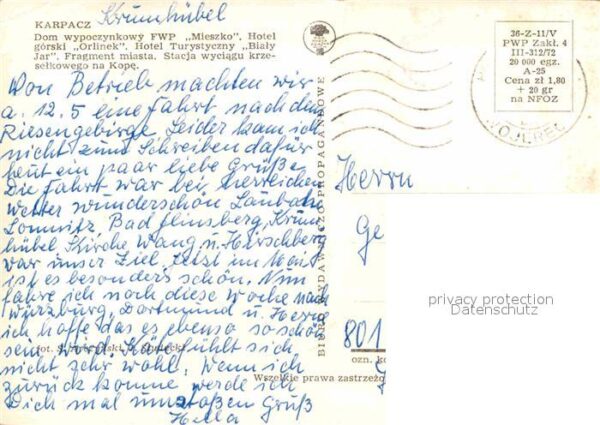 Krummhübel
KARPACZ
Dom wypoczynkowy FWP „Mieszko”, Hotel
górski „Orlinek”. Hotel Turystyczny „Biały
Jar”, Fragment miasta. Stacja wyciągu krze-
sełkowego na Kopę.
Von Betrieb machten wir
a. 12.5 eine Fahrt nach dem
Riesengebirge. Leider kam ich
nicht zum Schreiben dafür
heut ein paar liebe Grüße.
Die Fahrt war bei herrlichen
Wetter wunderschön Lauban
Lomnitz, Bad Flinsberg, Krum
hübel Kirche Wang, u. Hirschberg
war unser Ziel. Jetzt im Mai
ist es besonders schön. Nun
fahre ich noch diese Woche nach
Würzburg, Dortmund u. Herne
ich hoffe das es ebenso so schön
sein wird. fühlt sich
nicht sehr wohl. Wenn ich
zurück komme werde ich
Dich mal Gruß
Hella
fot.
BIURO WYDAWNICZO-PROPAGANDOWE
36-Z-11/V
PWP Zakł. 4
III-312/72
20 000 egz.
A-25
Cena zł 1,80
+ 20 gr
na NFOZ
Herrn
Ge
801
ozn. ko
Wszelkie prawa zastrzeżo
privacy protection
Datenschutz